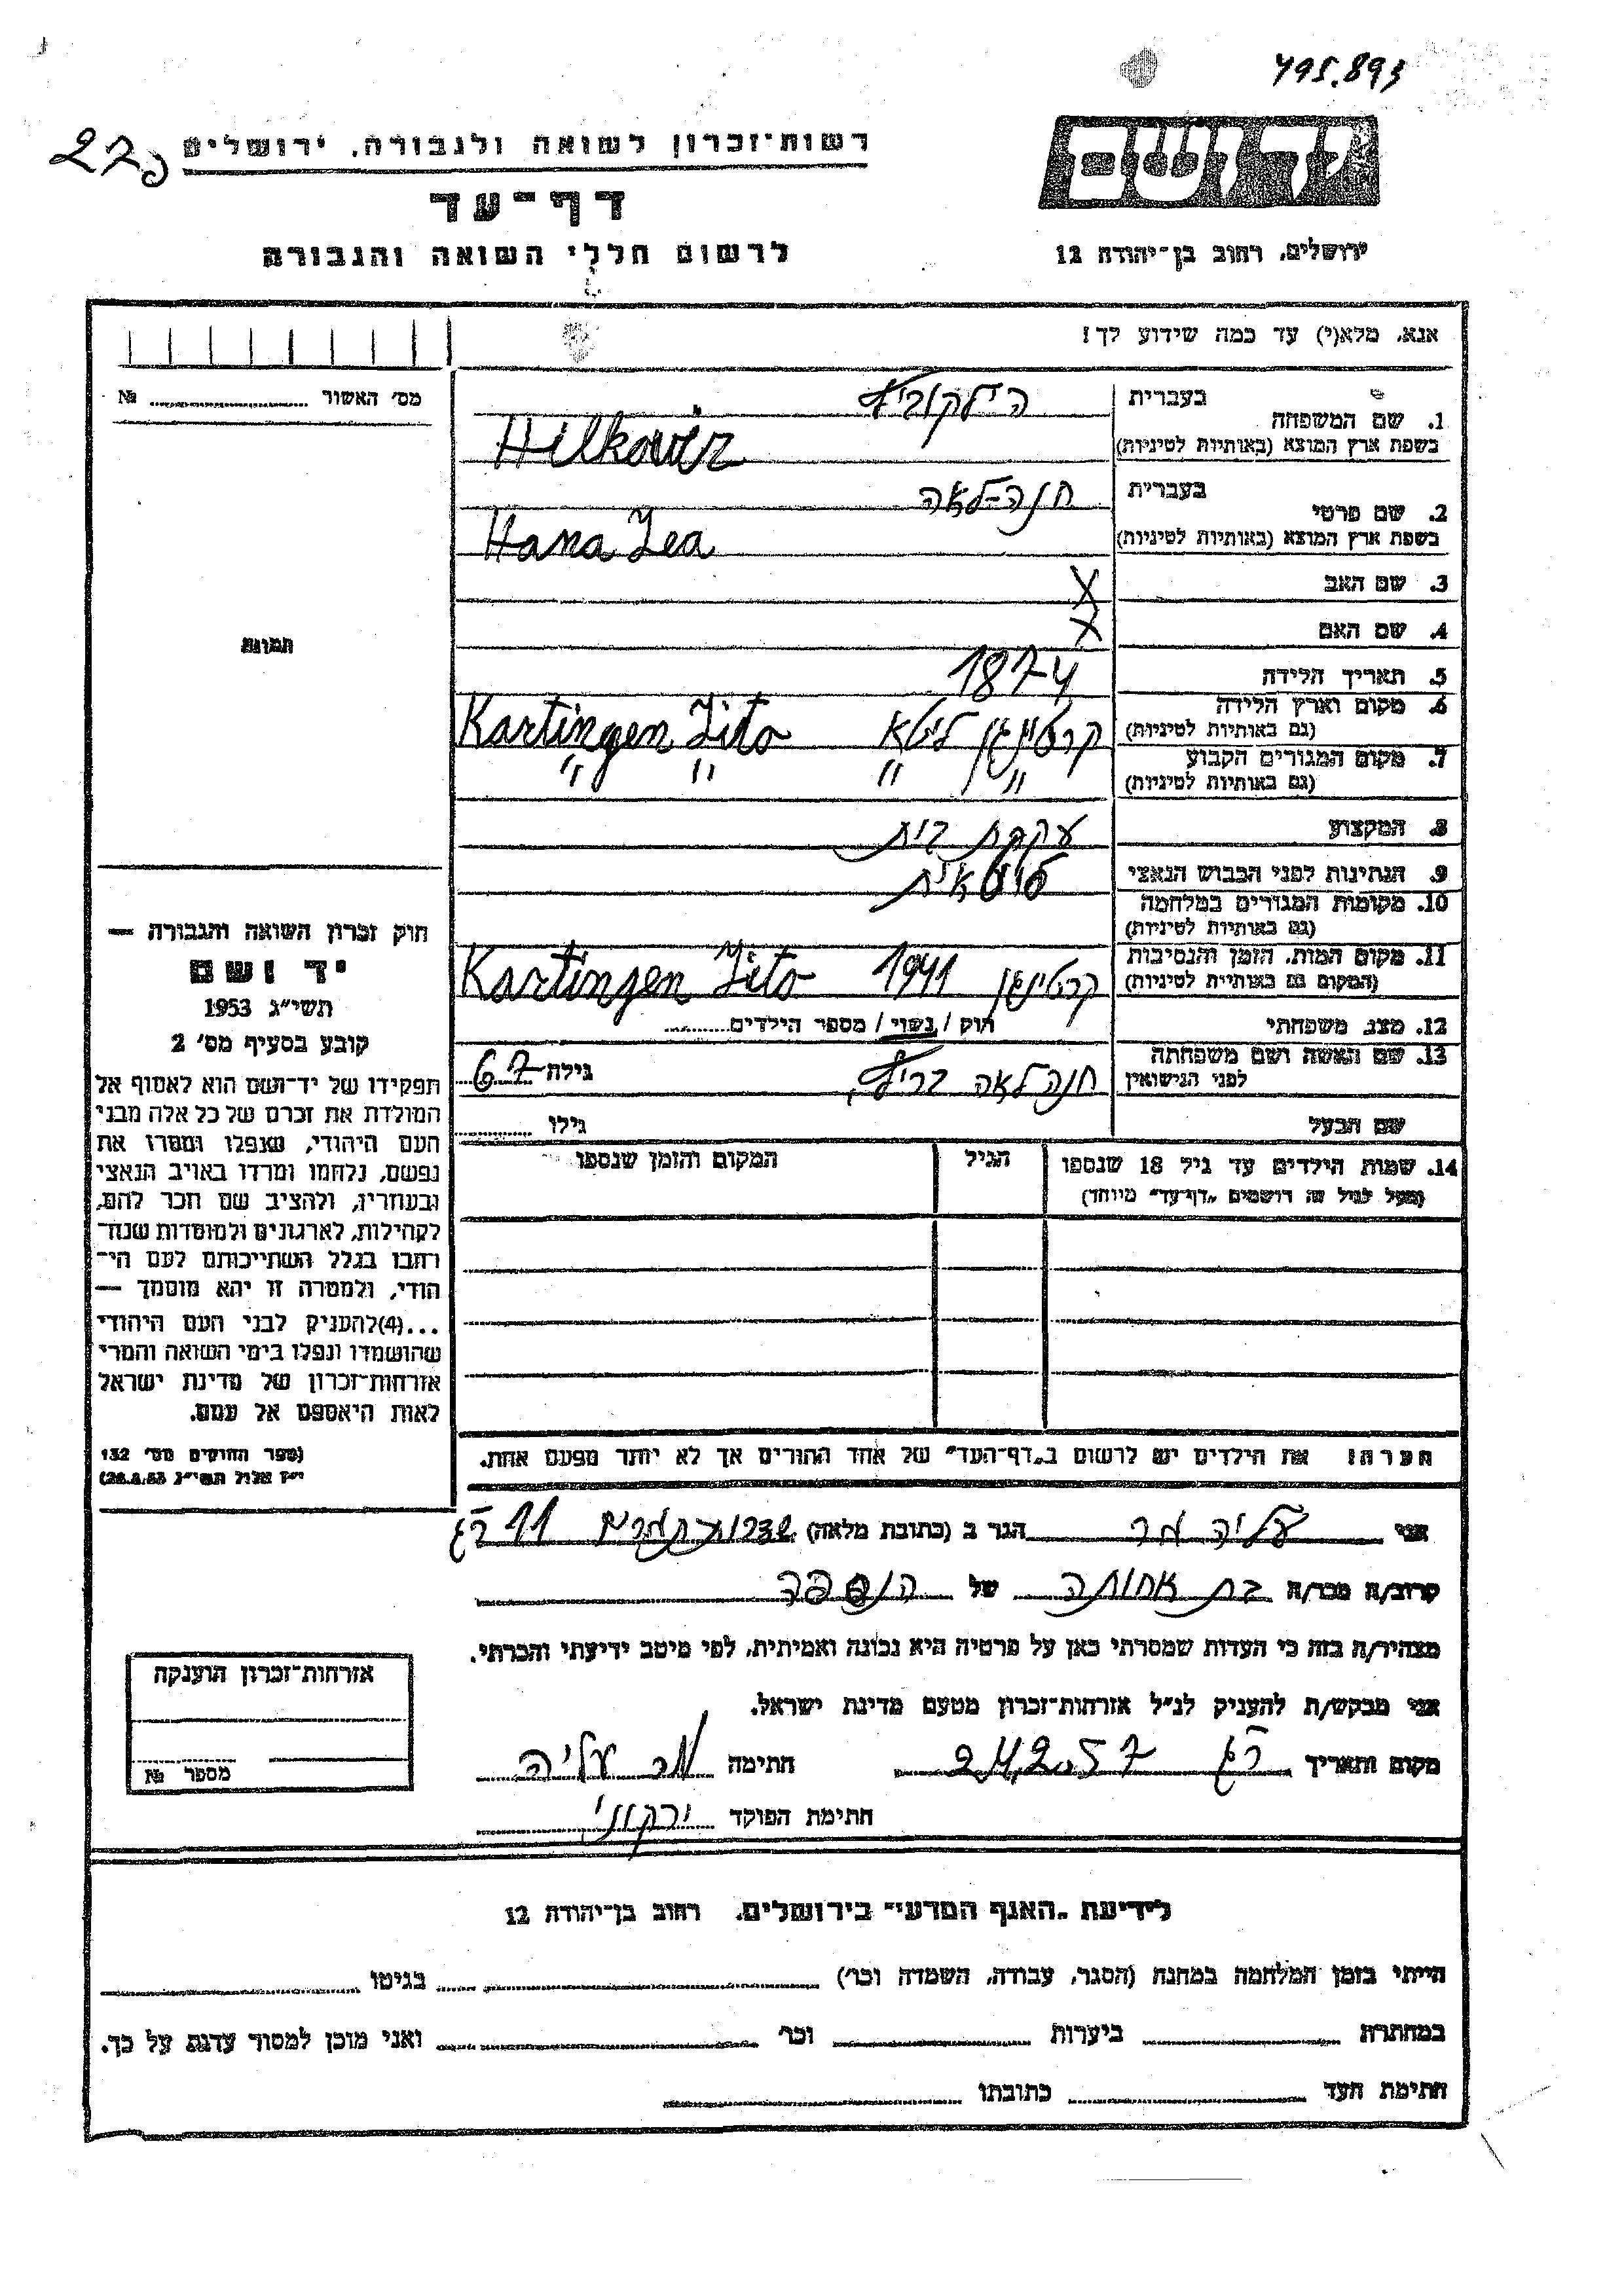 495.893
רשות־זכרון לשואה ולגבורה, ירושלים
דף־עד
לרשום חללי השואה והגבורה
יד ושם
ירושלים, רחוב בן־יהודה 12
אנא, מלא(י) עד כמה שידוע לך!
מס׳ האשור № 
1. שם המשפחה
בעברית הילקוביץ
בשפת ארץ המוצא (באותיות לטיניות) Hilkoviz
2. שם פרטי
בעברית חנה-לאה
בשפת ארץ המוצא (באותיות לטיניות) Hana Lea
3. שם האב X
4. שם האם X
5. תאריך הלידה 1874
6. מקום וארץ הלידה קרטינגן ליטא Kartingen Lito
(גם באותיות לטיניות)
7. מקום המגורים הקבוע " " " "
(גם באותיות לטיניות)
8. המקצוע עקרת בית
9. הנתינות לפני הכבוש הנאצי ליטאית
10. מקומות המגורים במלחמה
(גם באותיות לטיניות)
11. מקום המות, הזמן והנסיבות קרטינגן 1941 Kartingen Lito
(המקום גם באותיות לטיניות)
12. מצב משפחתי רוק / נשוי / מספר הילדים
13. שם האשה ושם משפחתה
לפני הנישואין חנה לאה גילה 67
שם הבעל גילו
14. שמות הילדים עד גיל 18 שנספו
(מעל לגיל זה רושמים „דף־עד" מיוחד)
הגיל
המקום והזמן שנספו
הערה: את הילדים יש לרשום ב„דף־העד" של אחד ההורים אך לא יותר מפעם אחת.
תמונה
חוק זכרון השואה והגבורה —
יד ושם
תשי״ג 1953
קובע בסעיף מס׳ 2
תפקידו של יד־ושם הוא לאסוף אל
המולדת את זכרם של כל אלה מבני
העם היהודי, שנפלו ומסרו את
נפשם, נלחמו ומרדו באויב הנאצי
ובעוזריו, ולהציב שם וזכר להם,
לקהילות, לארגונים ולמוסדות שנח־
רבו בגלל השתייכותם לעם הי־
הודי, ולמטרה זו יהא מוסמך —
...(4)להעניק לבני העם היהודי
שהושמדו ונפלו בימי השואה והמרי
אזרחות־זכרון של מדינת ישראל
לאות היאספם אל עמם.
(ספר החוקים מס׳ 132
י״ז אלול תשי״ג 28.8.53)
אני עליה מר הגר ב (כתובת מלאה) שדרות התמרים 11 ר״ג
קרוב/ה מכר/ה בת אחותה של הנספה
מצהיר/ה בזה כי העדות שמסרתי כאן על פרטיה היא נכונה ואמיתית, לפי מיטב ידיעתי והכרתי.
אני מבקש/ת להעניק לנ״ל אזרחות־זכרון מטעם מדינת ישראל.
מקום ותאריך ר״ג 24.2.57 חתימה מר עליה
חתימת הפוקד ירקוני
אזרחות־זכרון הוענקה
מספר №
לידיעת „האגף המדעי" בירושלים, רחוב בן־יהודה 12
הייתי בזמן המלחמה במחנה (הסגר, עבודה, השמדה וכו׳) בגיטו
במחתרת ביערות וכו׳ ואני מוכן למסור עדות על כך.
חתימת העד כתובתו